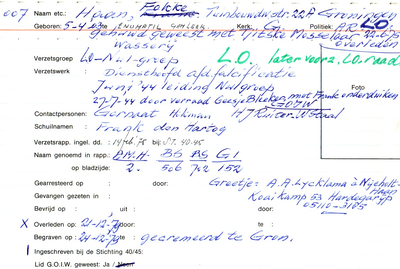 007 Naam etc.: Hoven, Fokke Tuinbouwdwstr. 22A Groningen
Geboren: 5-4-03 te ENUMATIL gem. Leek Kerk: G. Politiek: AR LO
gehuwd geweest met Tjitske Mosselaar 22-6-75
Wasserij overleden
Verzetsgroep LO-Nul-groep L.O. later voorz. LO.raad
Verzetswerk: Dienstchef afd. falsificatie
Juni '44 leiding Nulgroep
27-7-44 door verraad Geesje Bleeker, met Frank onderduiken
GOIW Foto
Contactpersonen: Gernaat Hikman HJ Kuiter N Staal
Schuilnamen Frank den Hartog
Verzetsrapp. ingel. dd.: 14 feb. 78 bij ST. 40-45
Naam genoemd in rapp.: P.M.H. BS BS GI
op bladzijde: 2. 506 702 152
Gearresteerd op : door: Greetje: A.A. Lyclama à Nijeholt-
Gevangen gezeten in : Haan
Kooikamp 53 Hardegarijp
Bevrijd op : uit : door: 05110-3185
X Overleden op: 21-12-79 door: te :
Begraven op : 24-12-79 te : gecremeerd te Gron.
Ingeschreven bij de Stichting 40/45:
Lid G.O.I.W. geweest: Ja / Neen